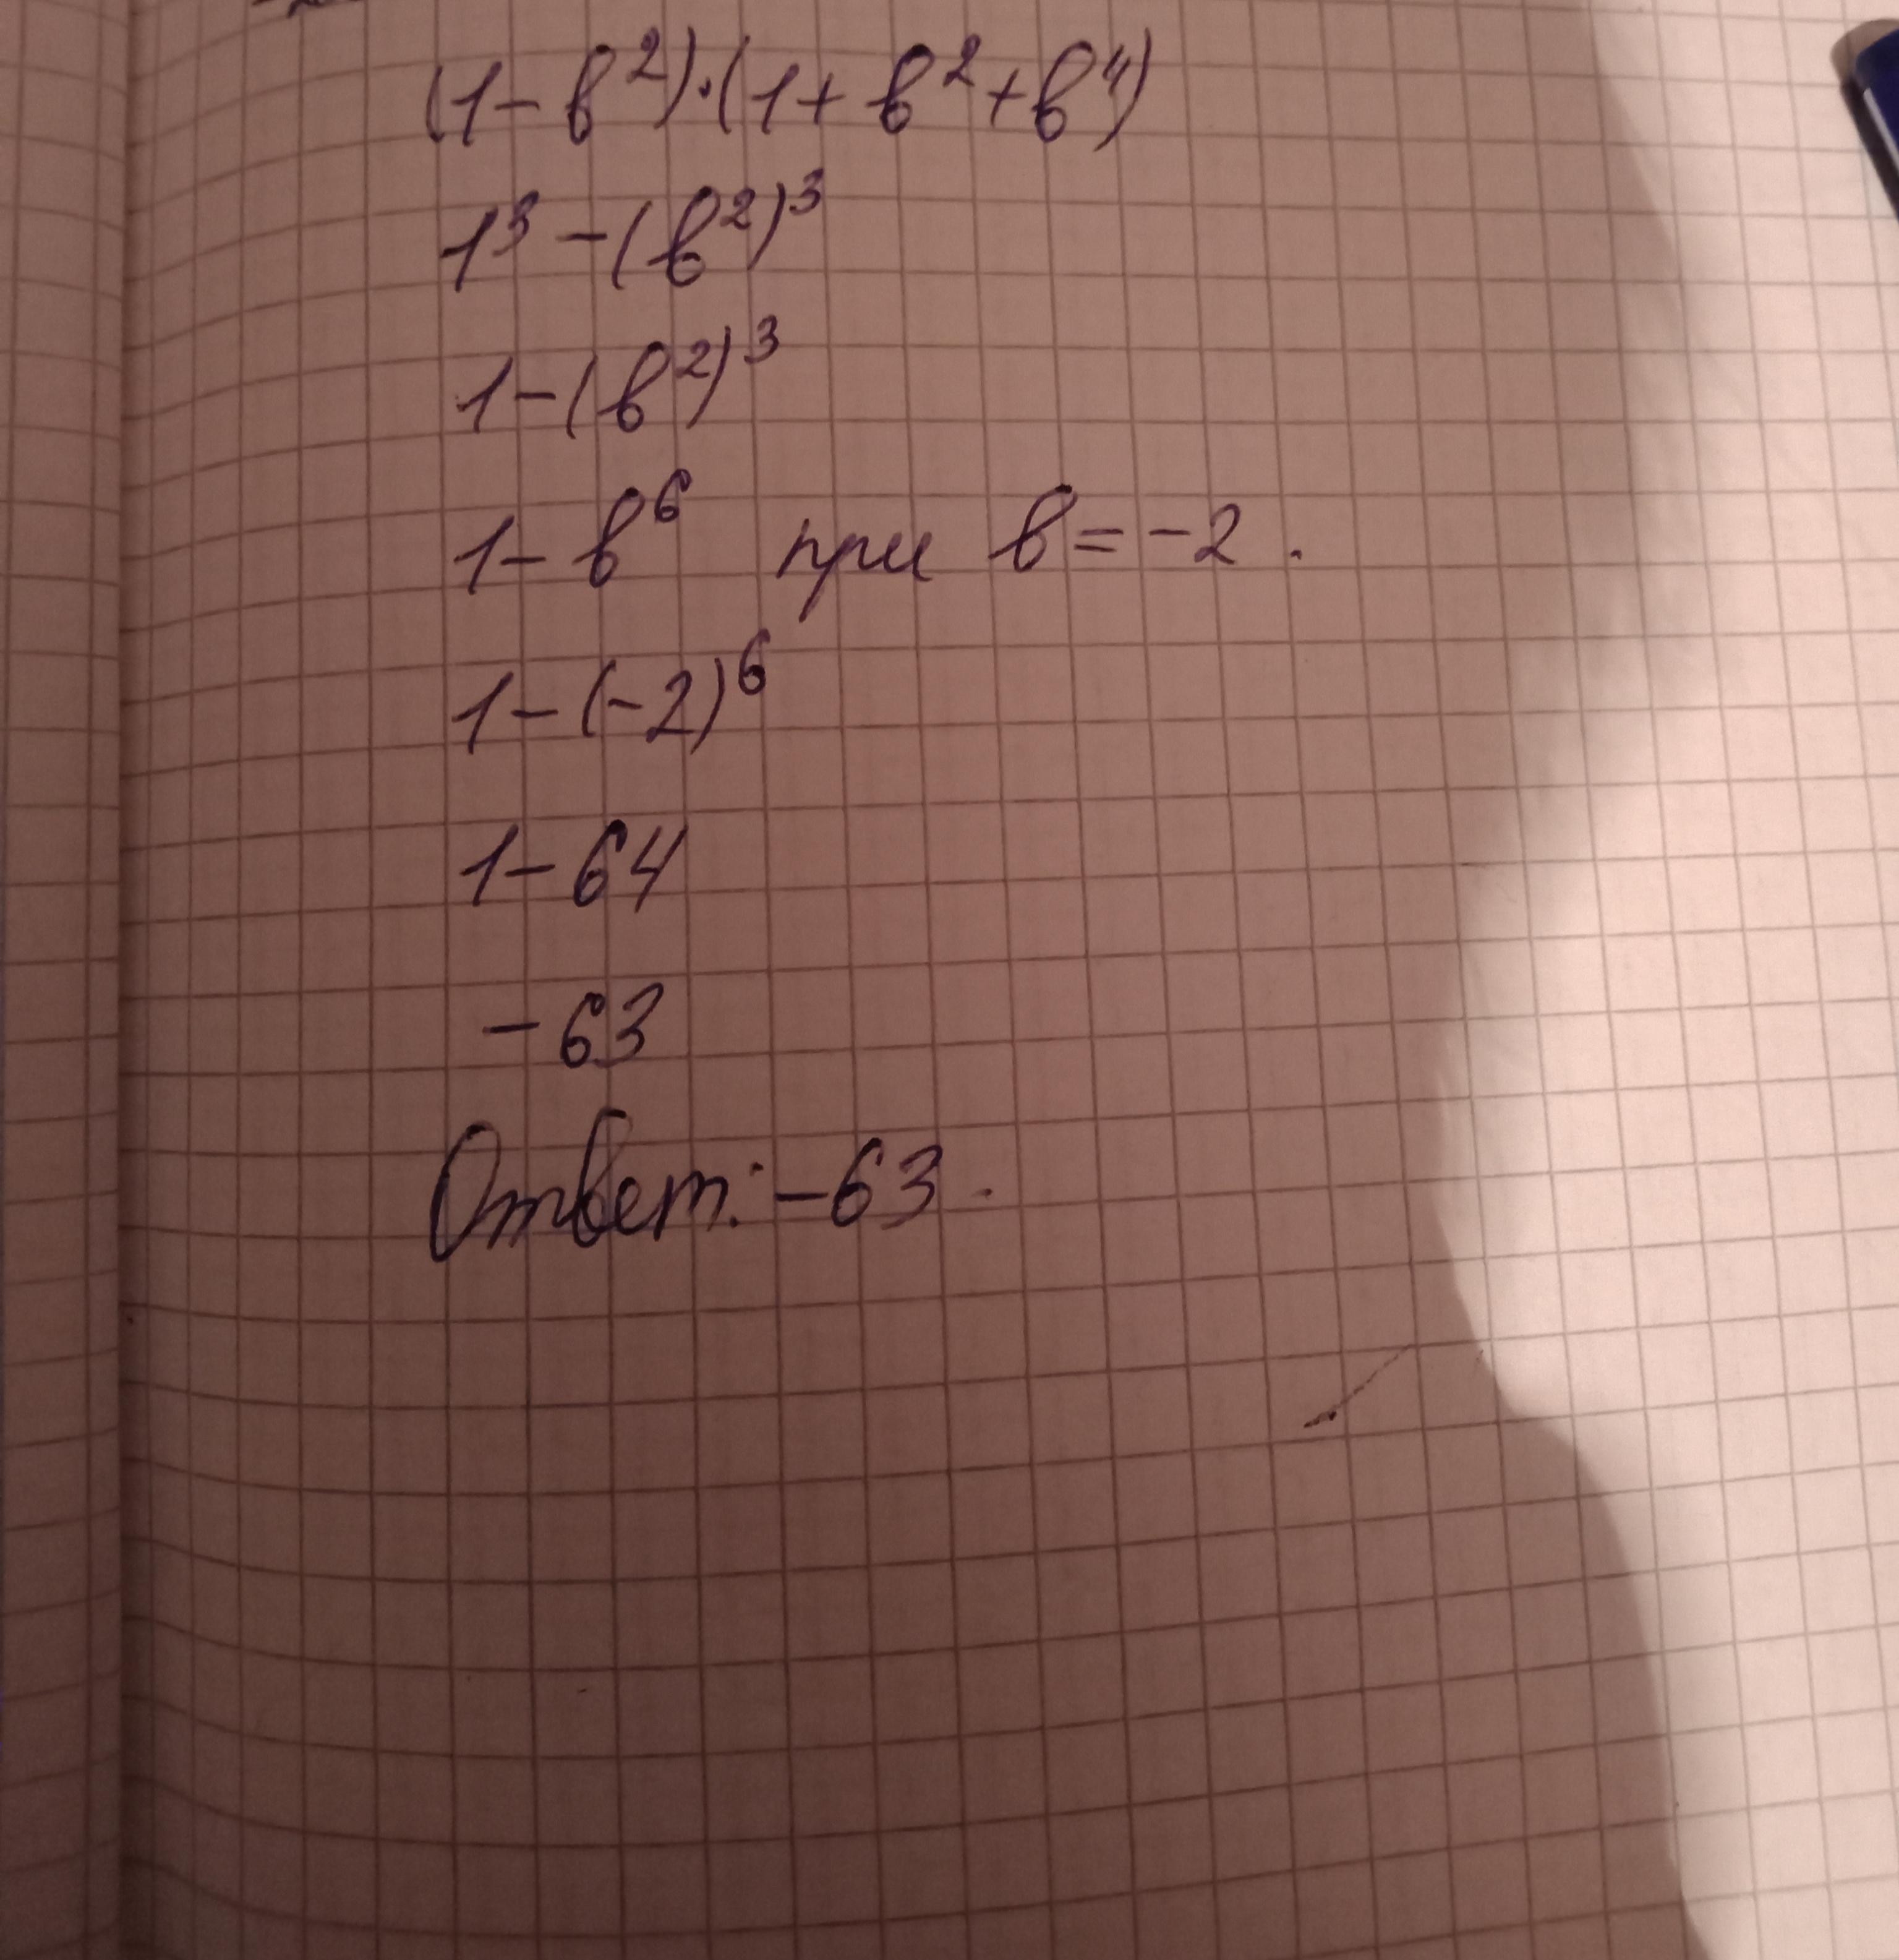 (1-в²)·(1+в²+в⁴)
1³-(в²)³
1-(в²)³
1-в⁶ при в=-2.
1-(-2)⁶
1-64
-63
Ответ: -63.